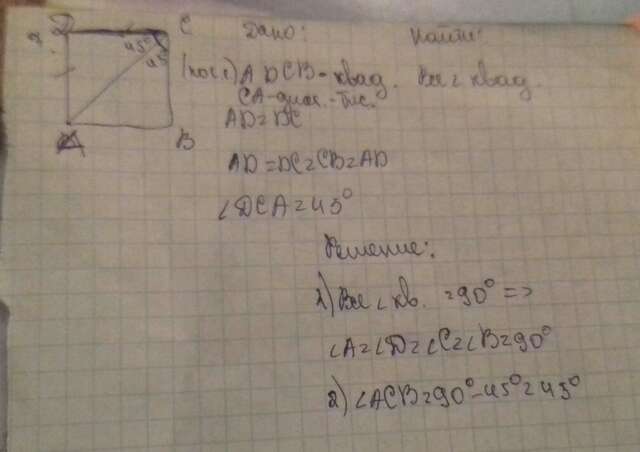 D C
45°
45
B
Дано: Найти:
ADCB - квад. Все ∠ квад.
CA - диаг. - бис.
AD = DC
AD = DC = CB = AD
∠DCA = 45°
Решение:
1) Все ∠ кв. = 90° =>
∠A = ∠D = ∠C = ∠B = 90°
2) ∠ACB = 90° - 45° = 45°